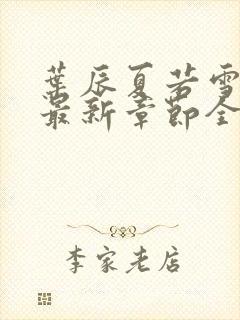 葉辰夏若雪
最新章節全
李家老店